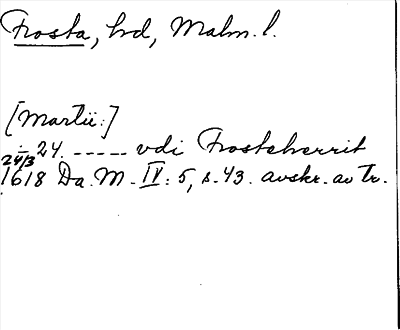 Frosta, hd, Malm. l.
[Martii:]
÷ 24. ----- vdi Frosteherrit
24/3
1618 Da. M. IV: 5, s. 43. avskr. av tr.